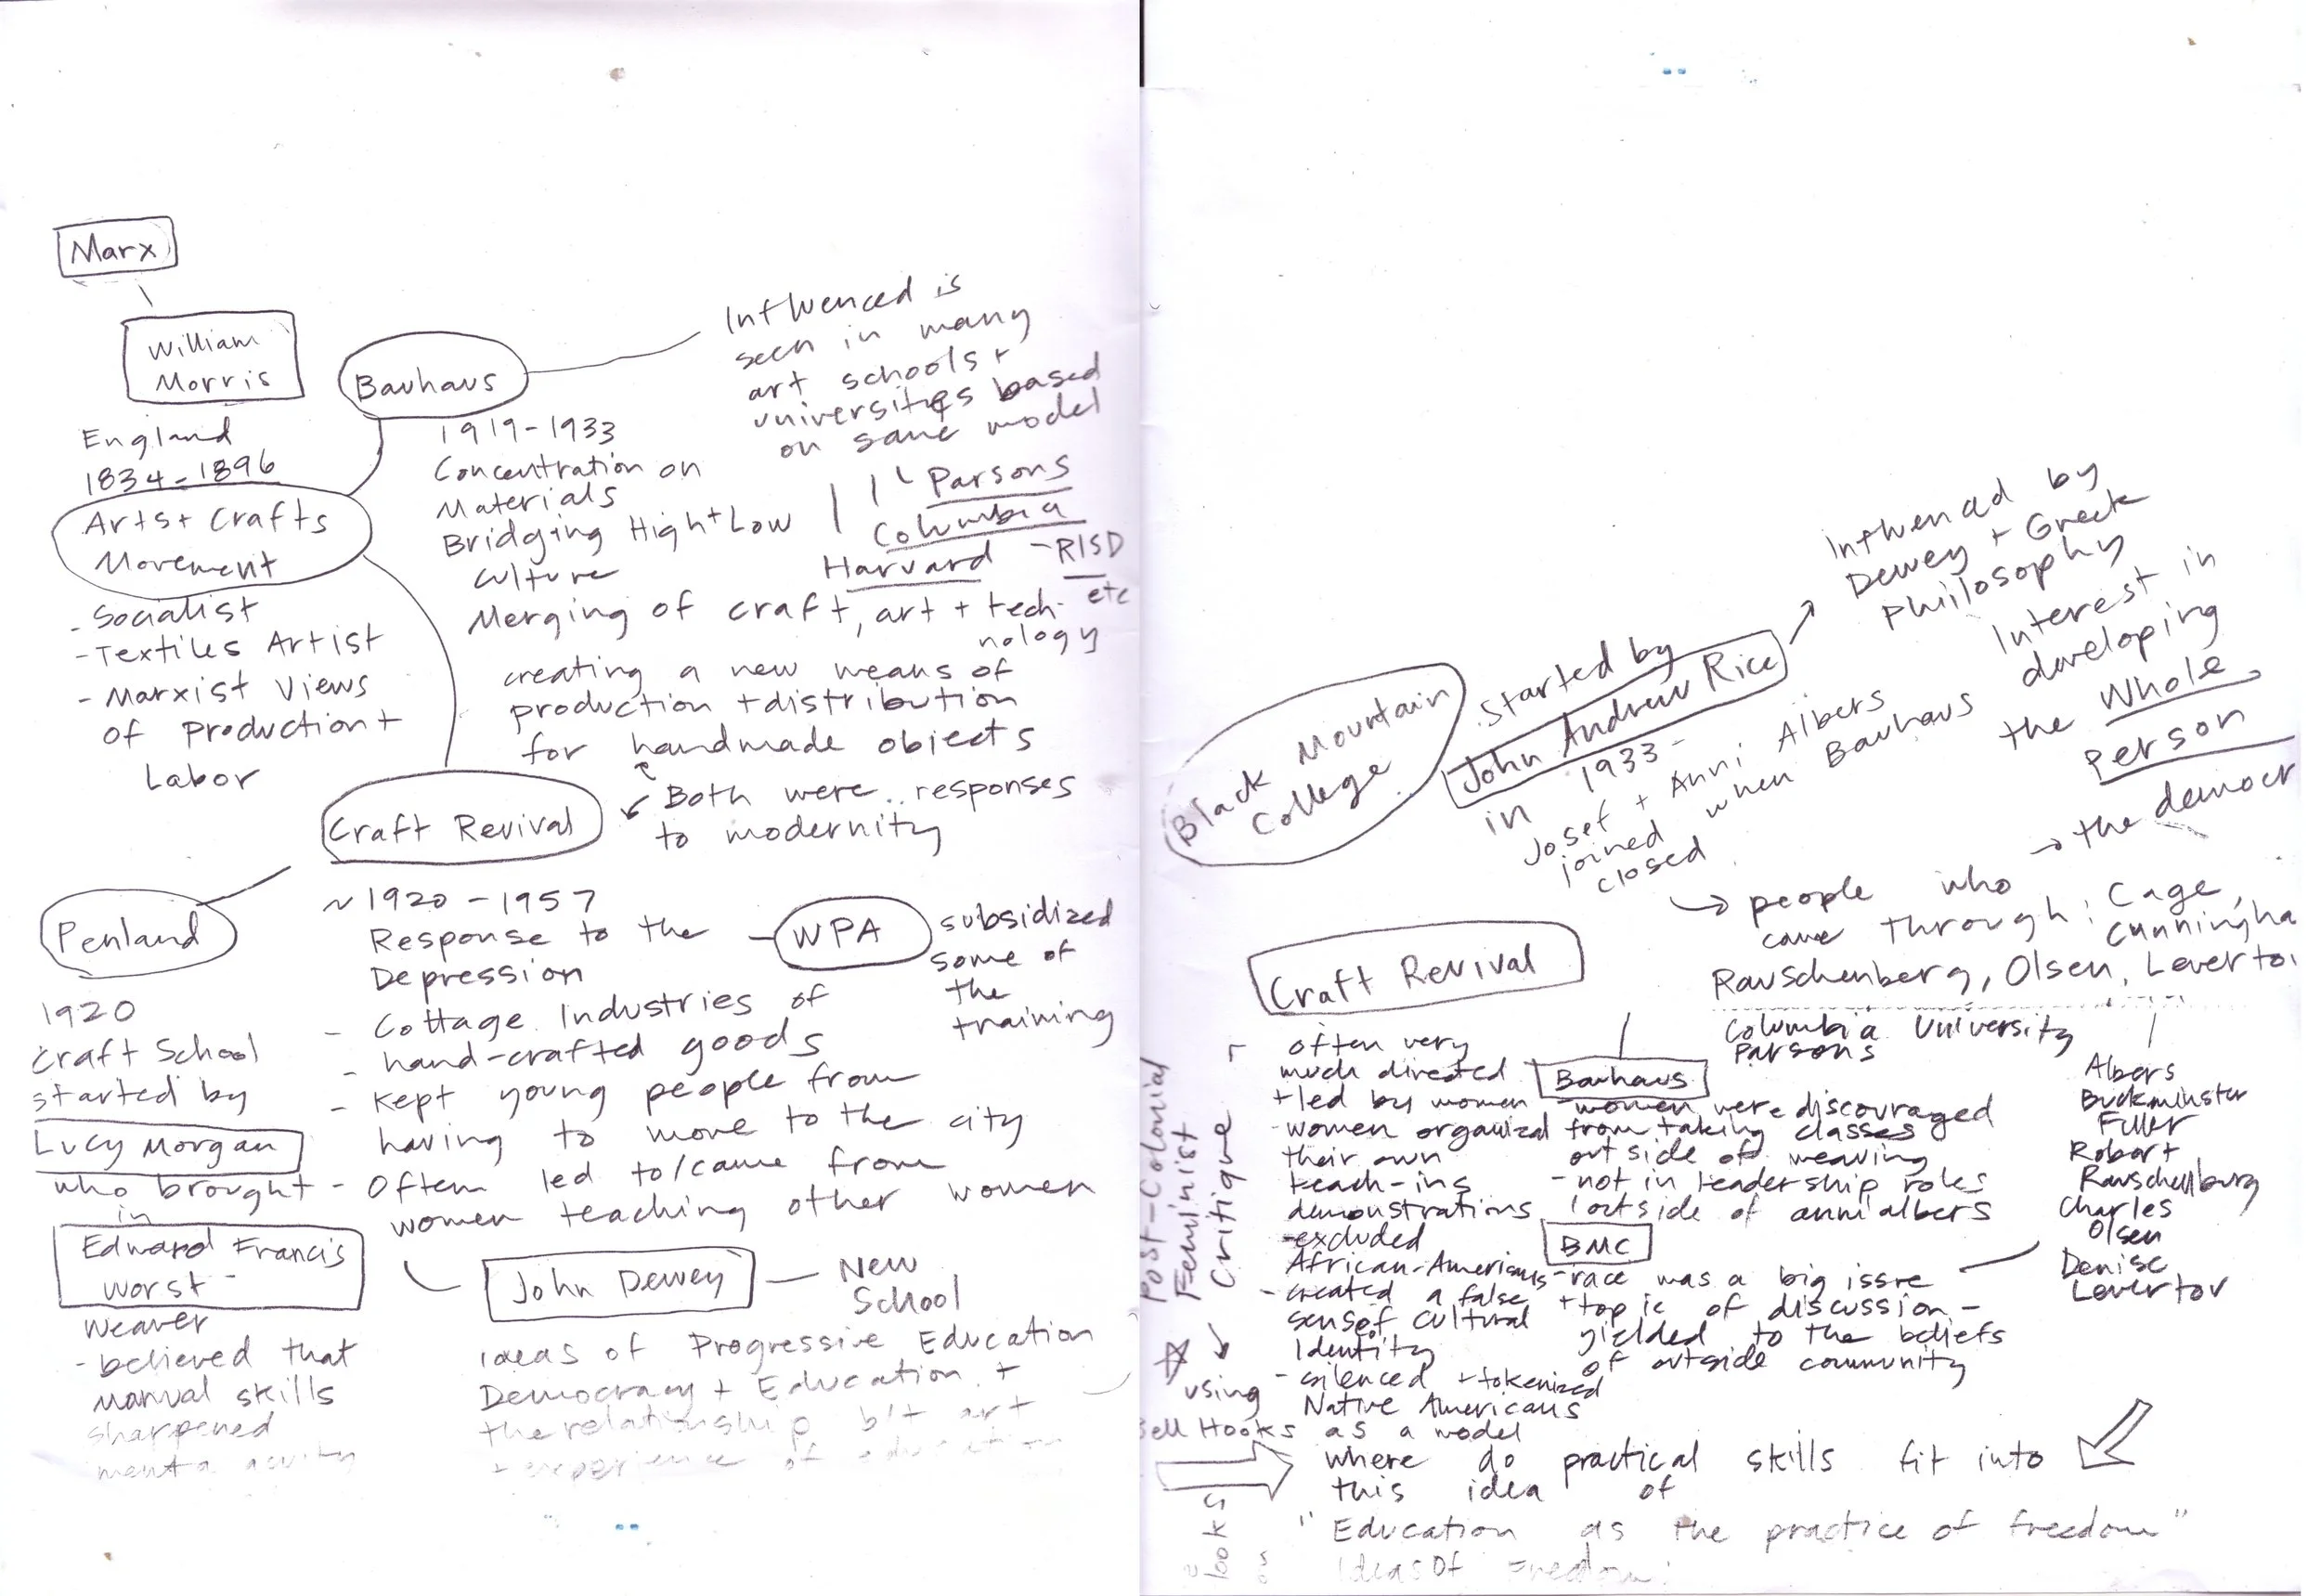 Marx
William
Morris
England
1834-1896
Arts + Crafts
Movement
- Socialist
- Textiles Artist
- Marxist Views
of Production +
Labor
Bauhaus
1919-1933
Concentration on
Materials
Bridging High + Low
Culture
Merging of craft, art + tech-
nology
creating a new means of
production + distribution
for handmade objects
Influenced is
seen in many
art schools +
universities based
on same model
Parsons
Columbia
Harvard - RISD
etc
Both were responses
to modernity
Craft Revival
~ 1920 - 1957
Response to the
Depression
- Cottage Industries of
- hand-crafted goods
- Kept young people from
having to move to the city
- Often led to/came from
women teaching other women
WPA
subsidized
some of
the
training
Penland
1920
Craft School
started by
Lucy Morgan
who brought
in
Edward Francis
Worst
Weaver
- believed that
manual skills
sharpened
John Dewey
New
School
Ideas of Progressive Education
Democracy + Education +
the relationship b/t art
+ experience of education
Black Mountain
College
Started by
John Andrew Rice
in 1933 -
Josef + Anni Albers
joined when Bauhaus
closed
Influenced by
Dewey + Greek
Philosophy
Interest in
developing
the Whole
Person
→ the democr
→ people who
came through: Cage,
Cunningha
Rauschenberg, Olsen, Levertoi
Columbia University
Parsons
Albers
Buckminster
Fuller
Robert
Rauschellburg
Charles
Olsen
Denise
Levertov
Craft Revival
often very
much directed
+ led by women
- women organized
their own
teach-ins
demonstrations
- excluded
African-Americans
- created a false
sense of cultural
Identity
- silenced + tokenized
Native Americans
Bauhaus
- women were discouraged
from taking classes
outside of weaving
- not in leadership roles
outside of anni albers
BMC
- race was a big issue
+ topic of discussion -
yielded to the beliefs
of outside community
Post-Colonial
Feminist
Critique
using
Bell Hooks as a model
where do practical skills fit into
this idea of
"Education as the practice of freedom"
Ideas Of Freedom:
looks